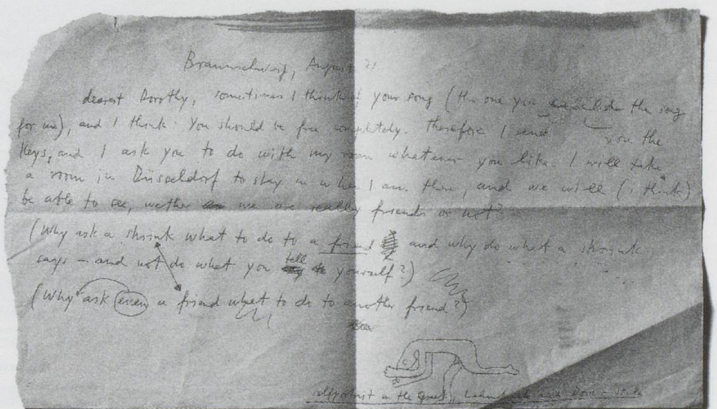 Braunschweig, August
dearest Dorothy, sometimes I think of your song (the one you the song
for me), and I think. You should be free completely. Therefore I send you the
Keys, and I ask you to do with my room whatever you like. I will take
a room in Düsseldorf to stay in when I am there, and we will (i think)
be able to see, wether we are really friends or not?
(Why ask a shrink what to do to a friend and why do what a shrink
says – and not do what you tell yourself?)
(Why ask even a friend what to do to another friend?)
selfportrait in the